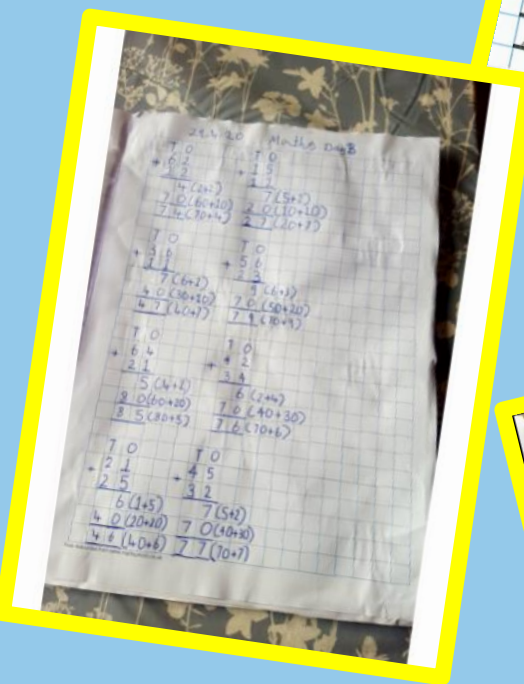 29.4.20 Maths Day 3
T O
+ 6 2
1 2
4 (2+2)
7 0 (60+10)
7 4 (70+4)
T O
+ 1 5
1 2
7 (5+2)
2 0 (10+10)
2 7 (20+7)
T O
+ 3 6
1 1
7 (6+1)
4 0 (30+10)
4 7 (40+7)
T O
+ 5 6
2 3
9 (6+3)
7 0 (50+20)
7 9 (70+9)
T O
+ 6 4
2 1
5 (4+1)
8 0 (60+20)
8 5 (80+5)
T O
+ 4 2
3 4
6 (2+4)
7 0 (40+30)
7 6 (70+6)
T O
+ 2 1
2 5
6 (1+5)
4 0 (20+20)
4 6 (40+6)
T O
+ 4 5
3 2
7 (5+2)
7 0 (40+30)
7 7 (70+7)